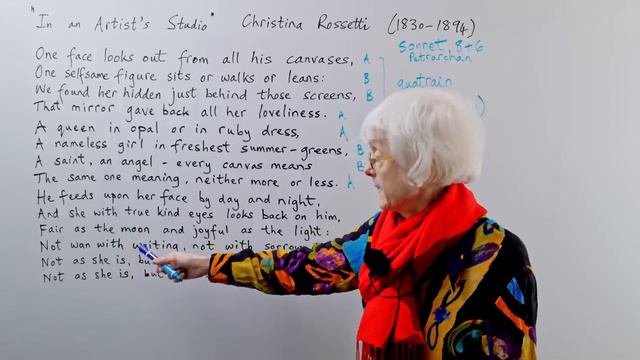 "In an Artist's Studio" Christina Rossetti (1830-1894)
Sonnet, 8+6
Petrarchan
One face looks out from all his canvases, A
One selfsame figure sits or walks or leans: B
quatrain
We found her hidden just behind those screens, B
That mirror gave back all her loveliness. A
A queen in opal or in ruby dress, A
A nameless girl in freshest summer-greens, B
A saint, an angel - every canvas means B
The same one meaning, neither more or less. A
He feeds upon her face by day and night,
And she with true kind eyes looks back on him,
Fair as the moon and joyful as the light:
Not wan with waiting, not with sorrow
Not as she is,
Not as she is, but